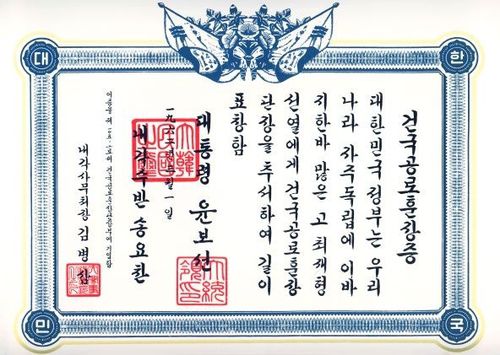 대한민국
건국공로훈장증
대한민국정부는 우리
나라 자주독립에 이바
지한바 많은 고 최재형
선열에게 건국공로훈장
단장을 추서하여 길이
표창함
대통령 윤보선
월 一일
내각수반 송요찬
건국공로훈장부에 기입함
내각사무처장 김병삼
大統領印